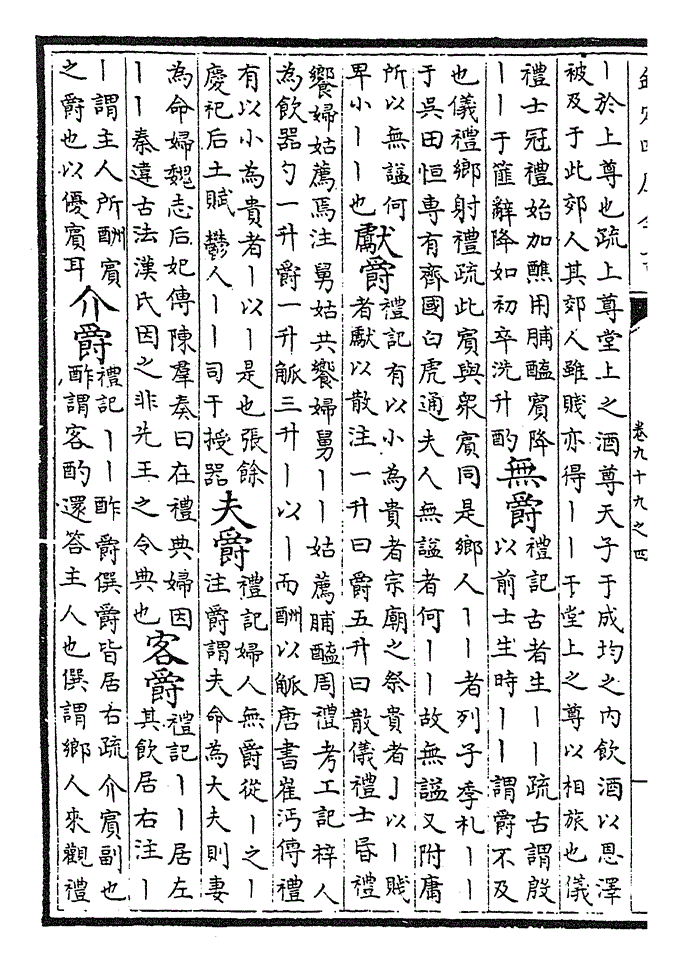 ｜於上尊也疏上尊堂上之酒尊天子于成均之内飲酒以恩澤
被及于此郊人其郊人雖賤亦得｜｜于堂上之尊以相旅也儀
禮士冠禮始加醮用脯醢賓降
｜｜于篚辭降如初卒洗升酌
無爵
禮記古者生｜｜疏古謂殷
以前士生時｜｜謂爵不及
也儀禮鄉射禮疏此賓與衆賓同是鄉人｜｜者列子季札｜｜
于吳田恒専有齊國白虎通夫人無謚者何｜｜故無謚又附庸
所以無謚何
卑小｜｜也
獻爵
禮記有以小為貴者宗廟之祭貴者｜以｜賤
者獻以散注一升曰爵五升曰散儀禮士昏禮
饗婦姑薦焉注舅姑共饗婦舅｜｜姑薦脯醢周禮考工記梓人
為飲器勺一升爵一升觚三升｜以｜而酬以觚唐書崔沔傳禮
有以小為貴者｜以｜是也張餘
慶祀后土賦鬱人｜｜司于授器
夫爵
禮記婦人無爵從｜之｜
注爵謂夫命為大夫則妻
為命婦魏志后妃傳陳羣奏曰在禮典婦因
｜｜秦違古法漢氏因之非先王之令典也
客爵
禮記｜｜居左
其飲居右注｜
｜謂主人所酬賓
之爵也以優賓耳
介爵
禮記｜｜酢爵僎爵皆居右疏介賓副也
酢謂客酌還答主人也僎謂鄉人來觀禮
卷九十九之四